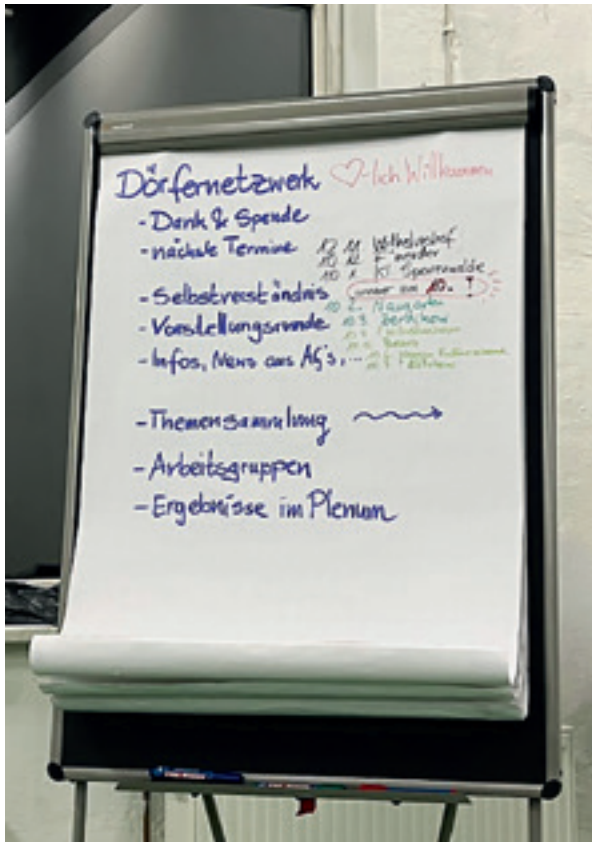 Dörfernetzwerk ♡-lich Willkommen
- Dank & Spende
- nächste Termine
12 11 Wilhelmshof
10 12
10 1 Kl Sperrwalde
- Selbstverständnis
immer am 10. !
10 2. Naugarten
- Vorstellungsrunde
10 3
- Infos, News aus AG's, ...
- Themensammlung
- Arbeitsgruppen
- Ergebnisse im Plenum